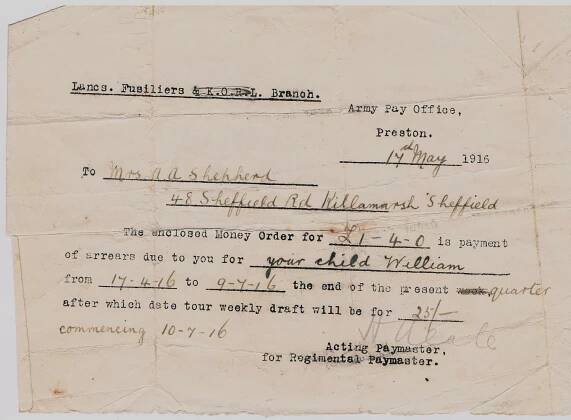 Lancs. Fusiliers & K.O.R.L. Branch.
Army Pay Office,
Preston.
17th May 1916
To Mrs A A Shepherd
48 Sheffield Rd Killamarsh Sheffield
The enclosed Money Order for £1-4-0 is payment
of arrears due to you for your child William
from 17-4-16 to 9-7-16 the end of the present week, quarter
after which date tour weekly draft will be for 25/-
commencing 10-7-16
Acting Paymaster,
for Regimental Paymaster.